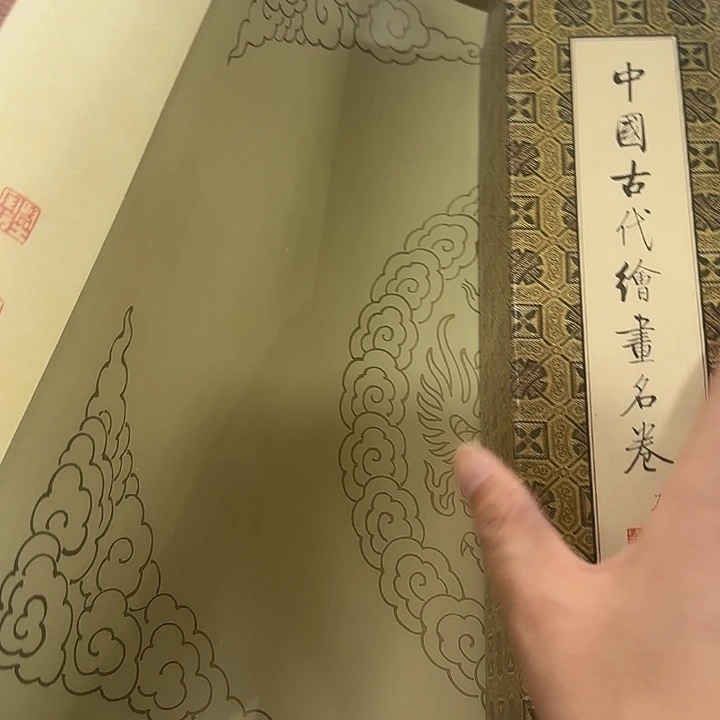 中國古代繪畫名卷